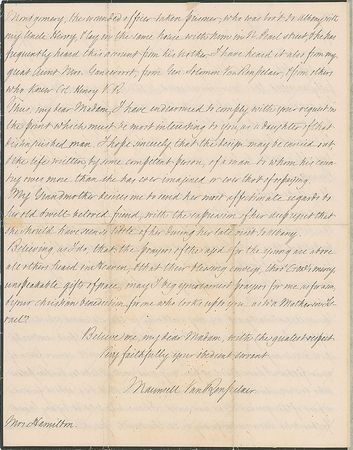 Montgomery, the wounded officer taken prisoner, who was sent to Albany with
my Uncle Henry, & lay in the same house with him in N. Pearl street, she has
frequently heard this account from his brother. I have heard it also from my
great Aunt Mrs. Gansevoort, from Gen Solomon Van Rensselaer, & from others
who knew Col. Henry V. R.
Thus, my dear Madam, I have endeavored to comply with your request in
the point which must be most interesting to you, as a daughter of that
distinguished man. I hope sincerely that this design may be carried out,
& the life written by some competent person, of a man to whom his coun-
try owes more than she has ever imagined or ever thot of repaying.
My Grandmother desires me to send her most affectionate regards to
her old & well beloved friend, with the expression of her deep regret that
she should have seen so little of her during her late visit to Albany.
Believing as I do, that the prayers of the aged for the young are above
all others heard in Heaven, & that their blessing conveys, thro' God's mercy
unspeakable gifts of grace, may I beg your earnest prayers for me & for
your christian benediction for me who looks up to you as to a Mother in Is-
rael."
Believe me, my dear Madam, with the greatest respect
Very faithfully your obedient servant
Maunsell Van Rensselaer.
Mrs. Hamilton.